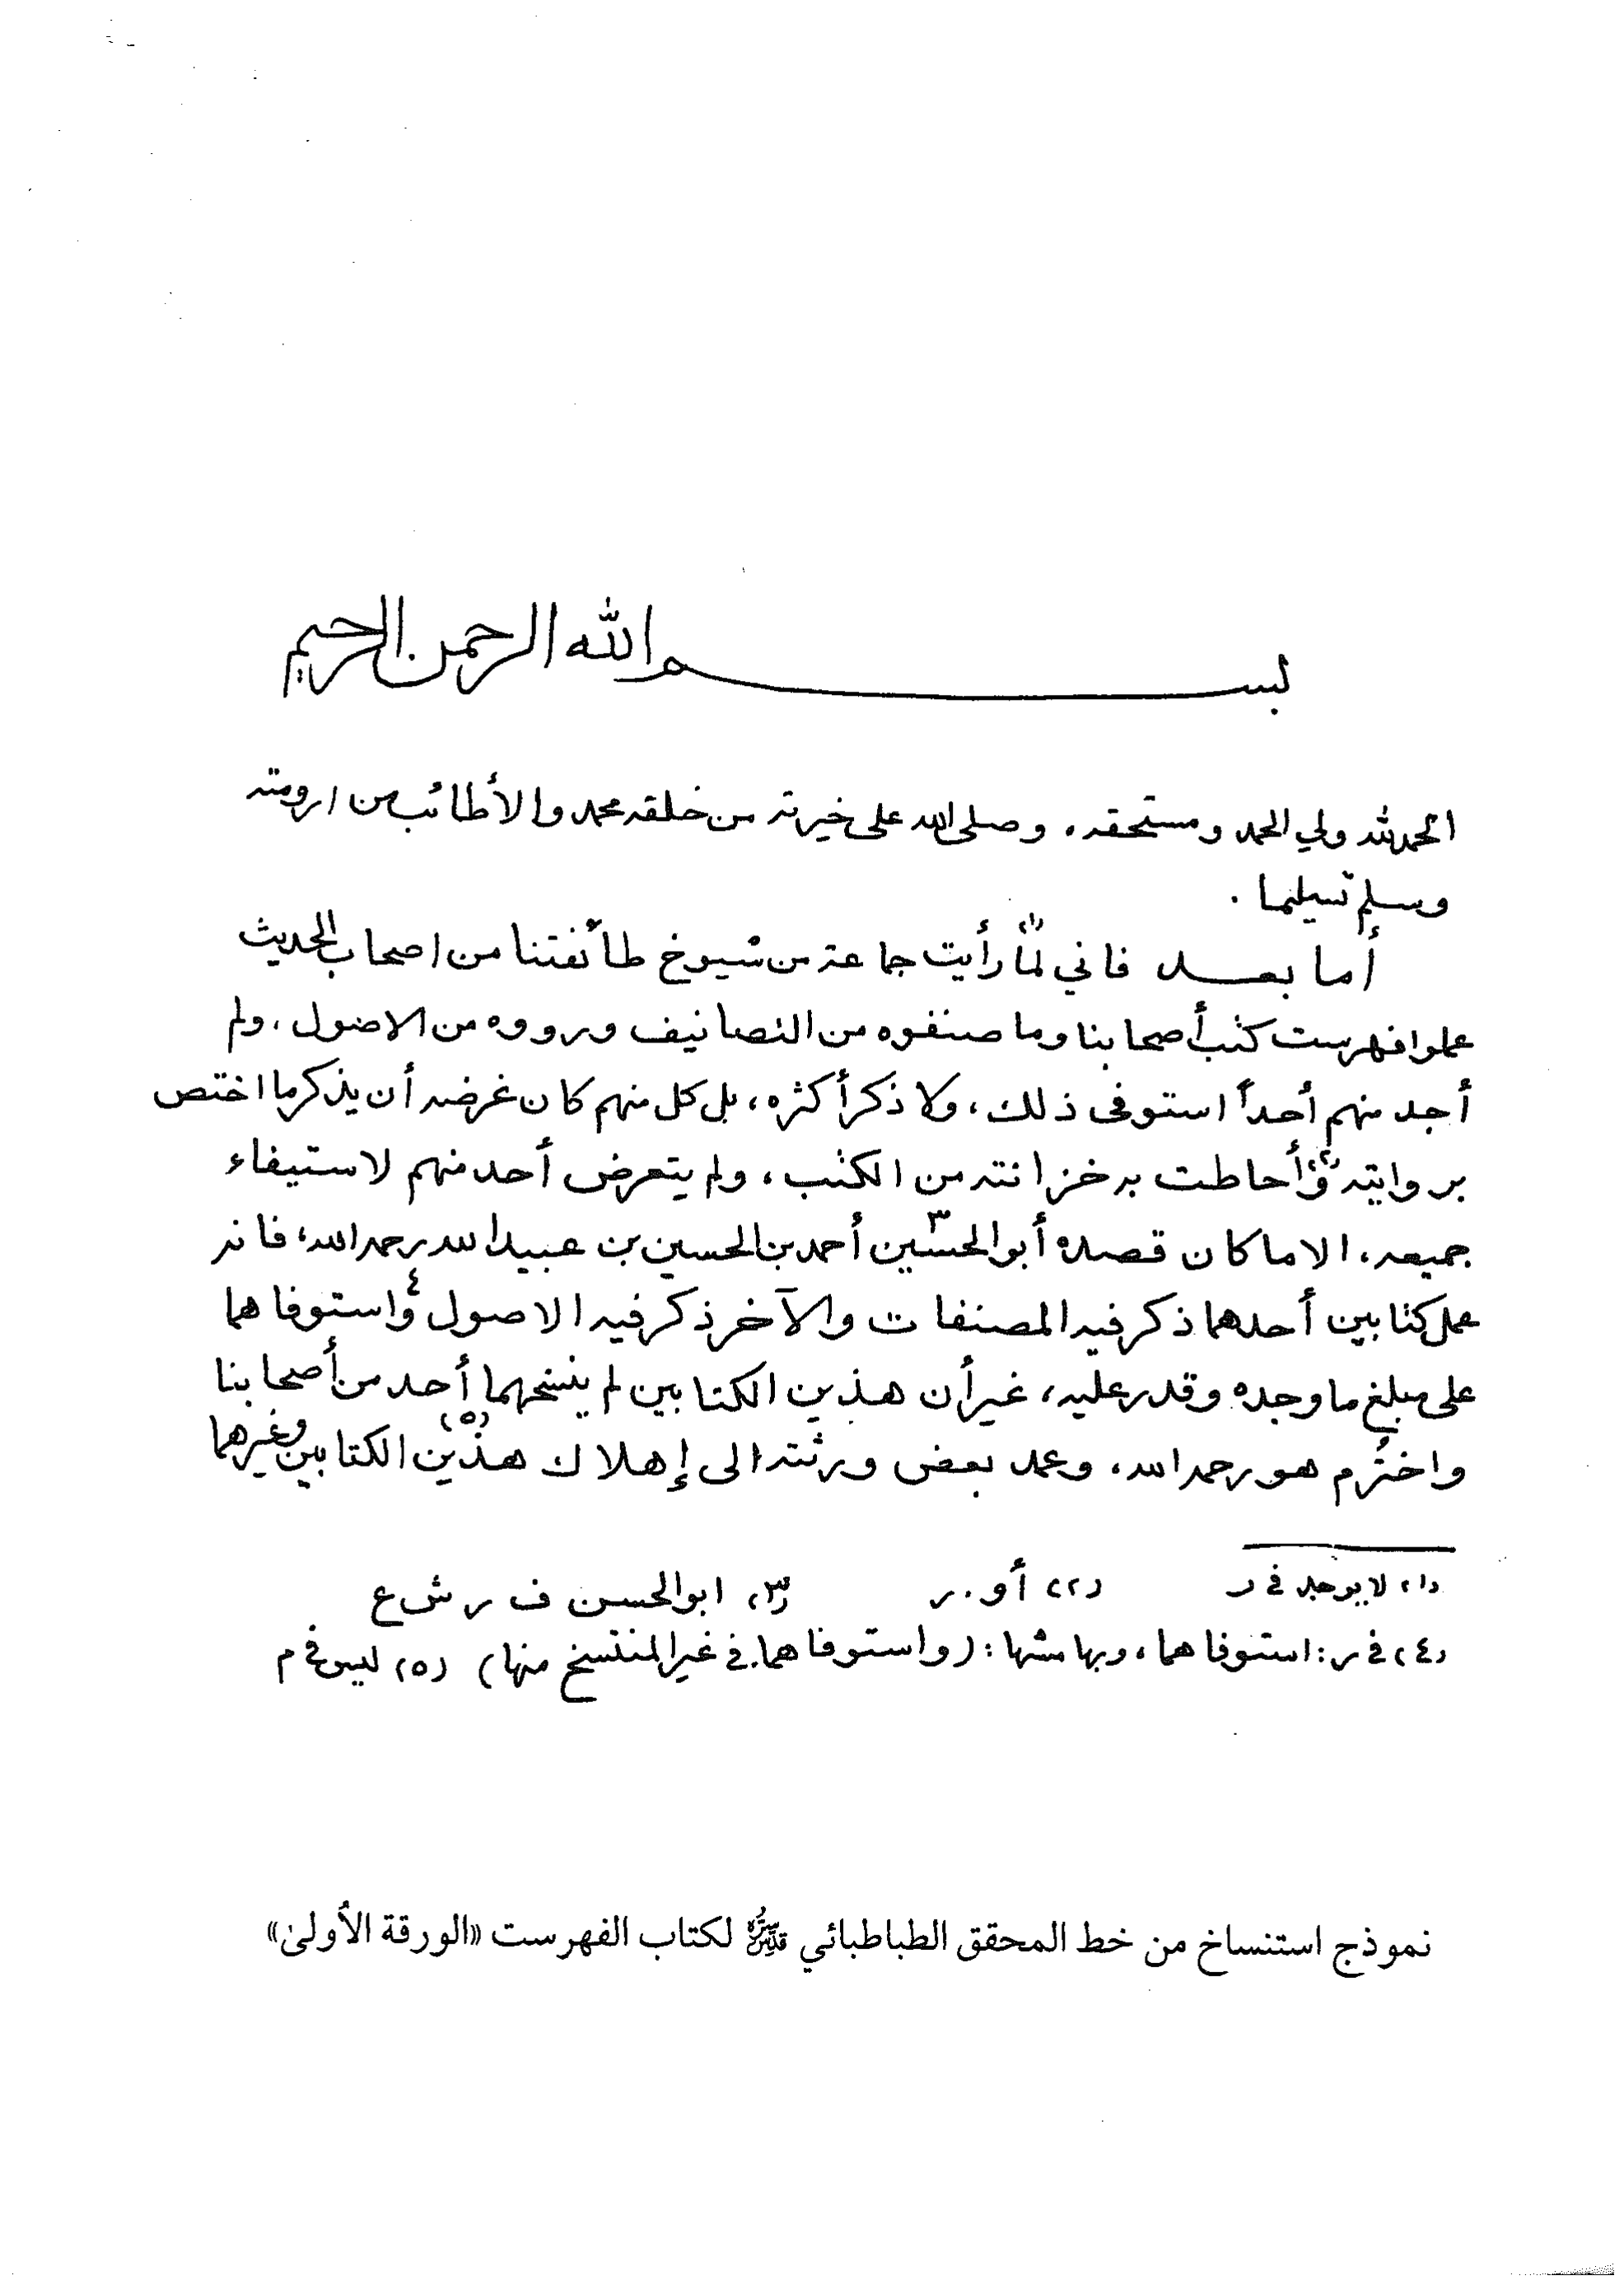 بسم الله الرحمن الرحيم
الحمد لله ولي الحمد ومستحقه. وصلى الله على خيرته من خلقه محمد والأطائب من ارومته
وسلم تسليما .
أما بعد فاني لمّا(١) رأيت جماعة من شيوخ طائفتنا من اصحاب الحديث
عملوا فهرست كتب أصحابنا وما صنفوه من التصانيف ورووه من الاصول، ولم
أجد منهم أحداً استوفى ذلك، ولا ذكر أكثره، بل كل منهم كان غرضه أن يذكر ما اختص
بروايته وأحاطت(٢) به خزانته من الكتب، ولم يتعرض أحد منهم لاستيفاء
جميعه، الا ما كان قصده أبو الحسين٣ أحمد بن الحسين بن عبيد الله رحمه الله، فانه
عمل كتابين أحدهما ذكر فيه المصنفات والآخر ذكر فيه الاصول ٤واستوفاهما
على مبلغ ما وجده وقدر عليه، غير أن هذين الكتابين لم ينسخهما أحد من أصحابنا
واختُرم هو رحمه الله، وعمد بعض ورثته الى إهلاك هذين(٥) الكتابين وغيرهما
(١) لا يوجد في ر (٢) أو. ر (٣) ابو الحسن ف ر ش ع
(٤) في ر: استوفاهما، وبهامشها: (واستوفاهما. في غير المنتسخ منها) (٥) ليس في م
نموذج استنساخ من خط المحقق الطباطبائي قدس سره لكتاب الفهرست «الورقة الأولىٰ»